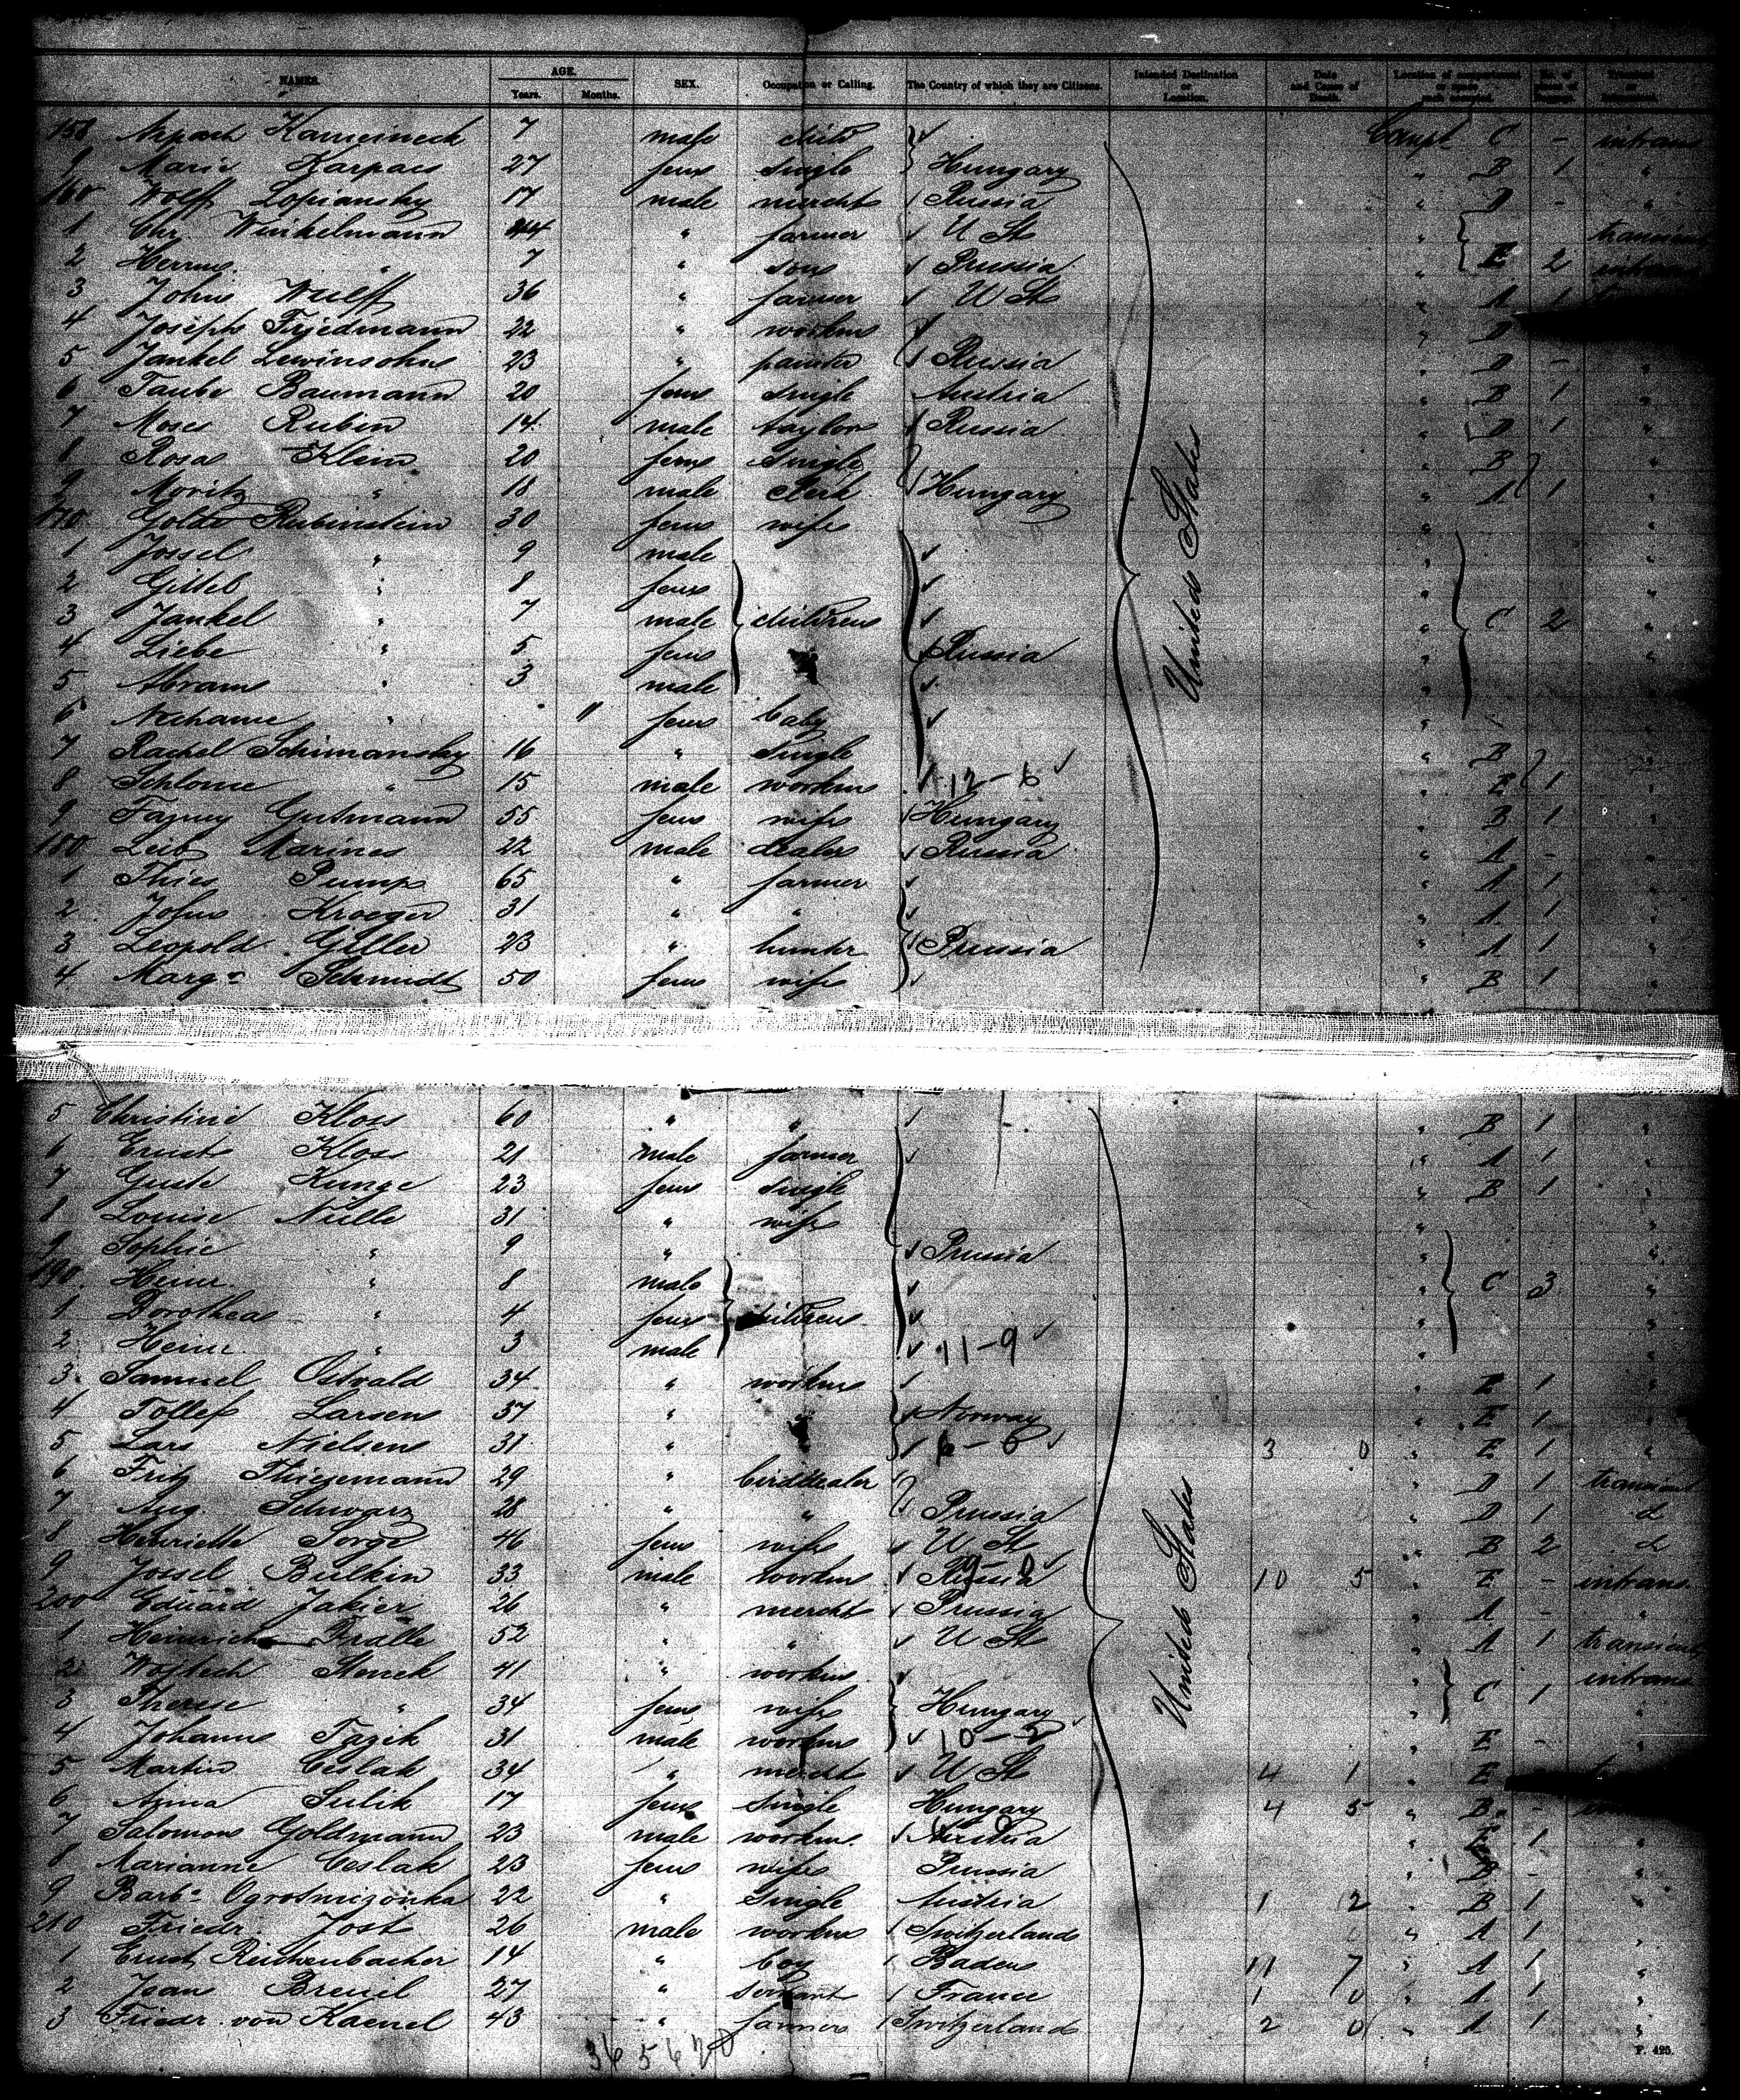 NAMES. AGE. Years. Months. SEX. Occupation or Calling. The Country of which they are Citizens. Intended Destination or Location. Date and Cause of Death. Location of compartment
158 Kameineck 7 male child Compt C - intrans
9 Marie Karpacs 27 fem single Hungary " B 1 "
160 Wolff Lopiansky 17 male mercht Russia " D - "
1 Chr. Winkelmann 44 " farmer U St " transient
2 Herm. " 7 " son Prussia " E 2 intrans
3 John Wulff 36 " farmer U St " A 1
4 Joseph Friedmann 22 " workm " D
5 Jankel Lewinsohn 23 " painter Russia " D - "
6 Taube Baumann 20 fem single Austria " B 1 "
7 Moses Rubin 14 male taylor Russia " D 1 "
8 Rosa Klein 20 fem single " B "
9 Moritz " 18 male clerk Hungary " A 1 "
170 Golde Rubinstein 30 fem wife " "
1 Jossel " 9 male " "
2 Gittel " 8 fem " "
3 Jankel " 7 male children " C 2 "
4 Liebe " 5 fem Russia " "
5 Abram " 3 male " "
6 Nechame " 11 fem baby " "
7 Rachel Schimansky 16 " single " B "
8 Schlome " 15 male workm 12-6 " E 1 "
9 Gutmann 55 fem wife Hungary " B 1 "
180 Leib Marines 22 male dealer Russia " A - "
1 Thies Pump 65 " farmer " A 1 "
2 John Kroeger 31 " " " A 1 "
3 Leopold Geller 23 " hunter Prussia " A 1 "
4 Marg. Schmidt 50 fem wife " B 1 "
United States
5 Christine Kloss 60 " " " B 1 "
6 Ernst Kloss 21 male farmer " A 1 "
7 Guste Kunge 23 fem single " B 1 "
8 Louise Nülle 31 " wife " "
9 Sophie " 9 " Prussia " "
190 Heinr. " 8 male " C 3 "
1 Dorothea " 4 fem children " "
2 Heinr. " 3 male 11-9 " "
3 Samuel Ostvald 34 " workm " E 1 "
4 Tollef Larsen 37 " " Norway " E 1 "
5 Lars Nielsen 31 " 6-0 3 0 " E 1 "
6 Fritz Thiesemann 29 " birddealer D 1 transient
7 Aug. Schwarz 28 " " Prussia " D 1
8 Henriette Sorge 46 fem wife U St " B 2
9 Jossel Bulkin 33 male workm Russia 10 5 " E - intrans.
200 Eduard Jakier 26 " mercht Prussia " A - "
1 Heinrich Pralle 52 " " U St " A 1 transient
2 Wojtech 41 " workm intrans
3 Therese " 34 fem wife Hungary " C 1 "
4 Johann Tazik 31 male workm 10-2 " E - "
5 Martin Ceslak 34 " mercht U St 4 1 " E
6 Anna Sulik 17 fem single Hungary 4 5 " B -
7 Salomon Goldmann 23 male workm Austria " E 1 "
8 Marianne Ceslak 23 fem wife Prussia " B - "
9 Barb. Ogrotniczonka 22 " single Austria 1 2 " B 1 "
210 Friedr. Jost 26 male workm Switzerland " A 1 "
1 Ernst Reichenbacher 14 " boy Baden 11 7 " A 1 "
2 Jean Breuil 27 " servant France 1 0 " A 1 "
3 Friedr. von Kaenel 43 " farmer Switzerland 2 0 " A 1 "
United States
F. 425.